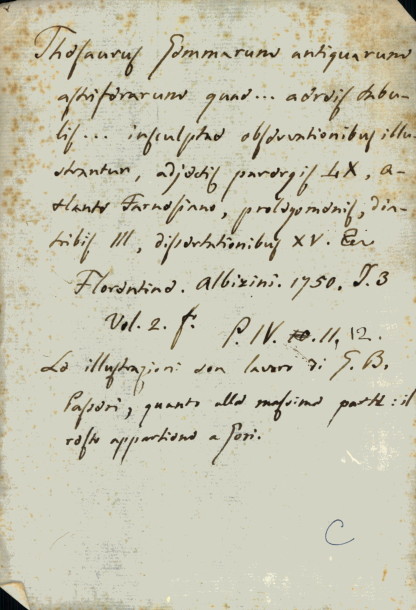 Thesaurus Gemmarum antiquarum
astriferarum quae... aereis tabu-
lis... insculptae observationibus illu-
strantur, adjectis parergis LX, A-
tlante Farnesiano, prolegomenis, dia-
tribis III, dissertationibus XV.
Florentiae. Albizini. 1750. T. 3
Vol. 2. f. P. IV. 10. 11, 12.
Le illustrazioni son lavoro di G. B.
Passeri, quanto alla massima parte: il
resto appartiene a Gori.
C